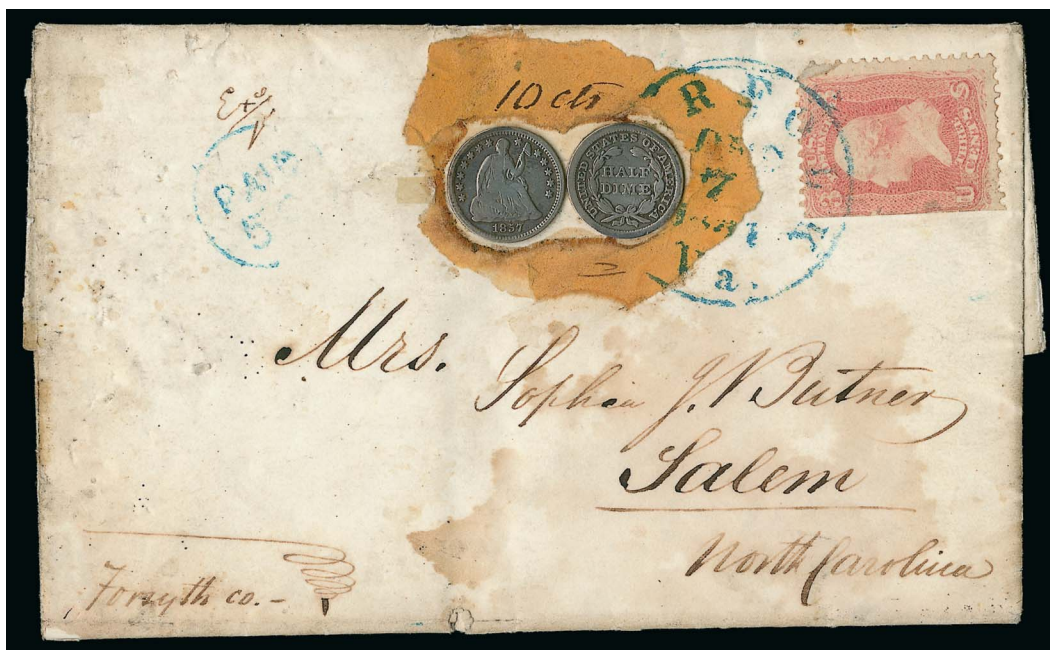 Exd
PAID
5
10 cts
UNITED STATES OF AMERICA
HALF
DIME
1857
7
a.
U.S. POSTAGE
Mrs.
Sophia J. Butner
Salem
North Carolina
Forsyth co. -